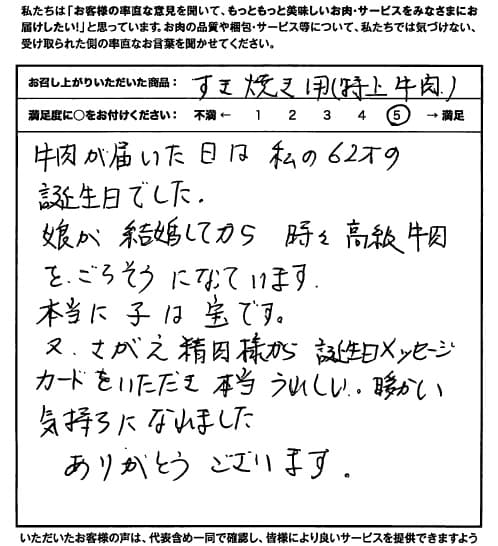 私たちは「お客様の率直な意見を聞いて、もっともっと美味しいお肉・サービスをみなさまにお
届けしたい!」と思っています。お肉の品質や梱包・サービス等について、私たちでは気づけない、
受け取られた側の率直なお言葉を聞かせてください。
お召し上がりいただいた商品： すき焼き用(特上牛肉)
満足度に○をお付けください： 不満 ← 1 2 3 4 5 → 満足
牛肉が届いた日は 私の62才の
誕生日でした.
娘が 結婚してから 時々 高級牛肉
を.ごちそうになっています.
本当に 子は 宝です。
又.さがえ精肉様から 誕生日メッセージ
カードをいただき 本当うれしい.暖かい
気持ちになれました
ありがとうございます.
いただいたお客様の声は、代表含め一同で確認し、皆様により良いサービスを提供できますよう